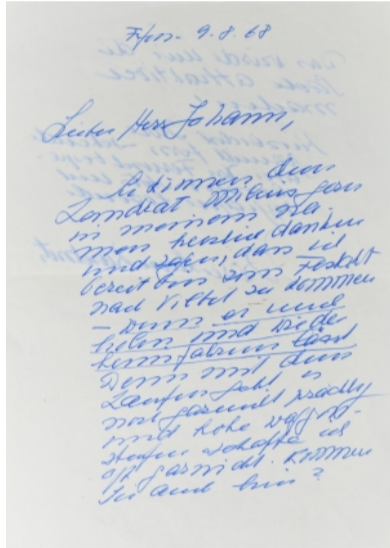 9.8.68
Lieber Herr Johann,
Sie können dem
Landrat Milius gern
in meinem Na-
men herzlich danken
und sagen, dass ich
bereit bin zum Festakt
nach Vilbel zu kommen
– wenn er mich
holen und wieder
heimfahren lässt
Denn mit dem
Laufen geht es
noch garnicht
und hohe
stufen schaffe ich
oft garnicht. Kommen
Sie auch hin?